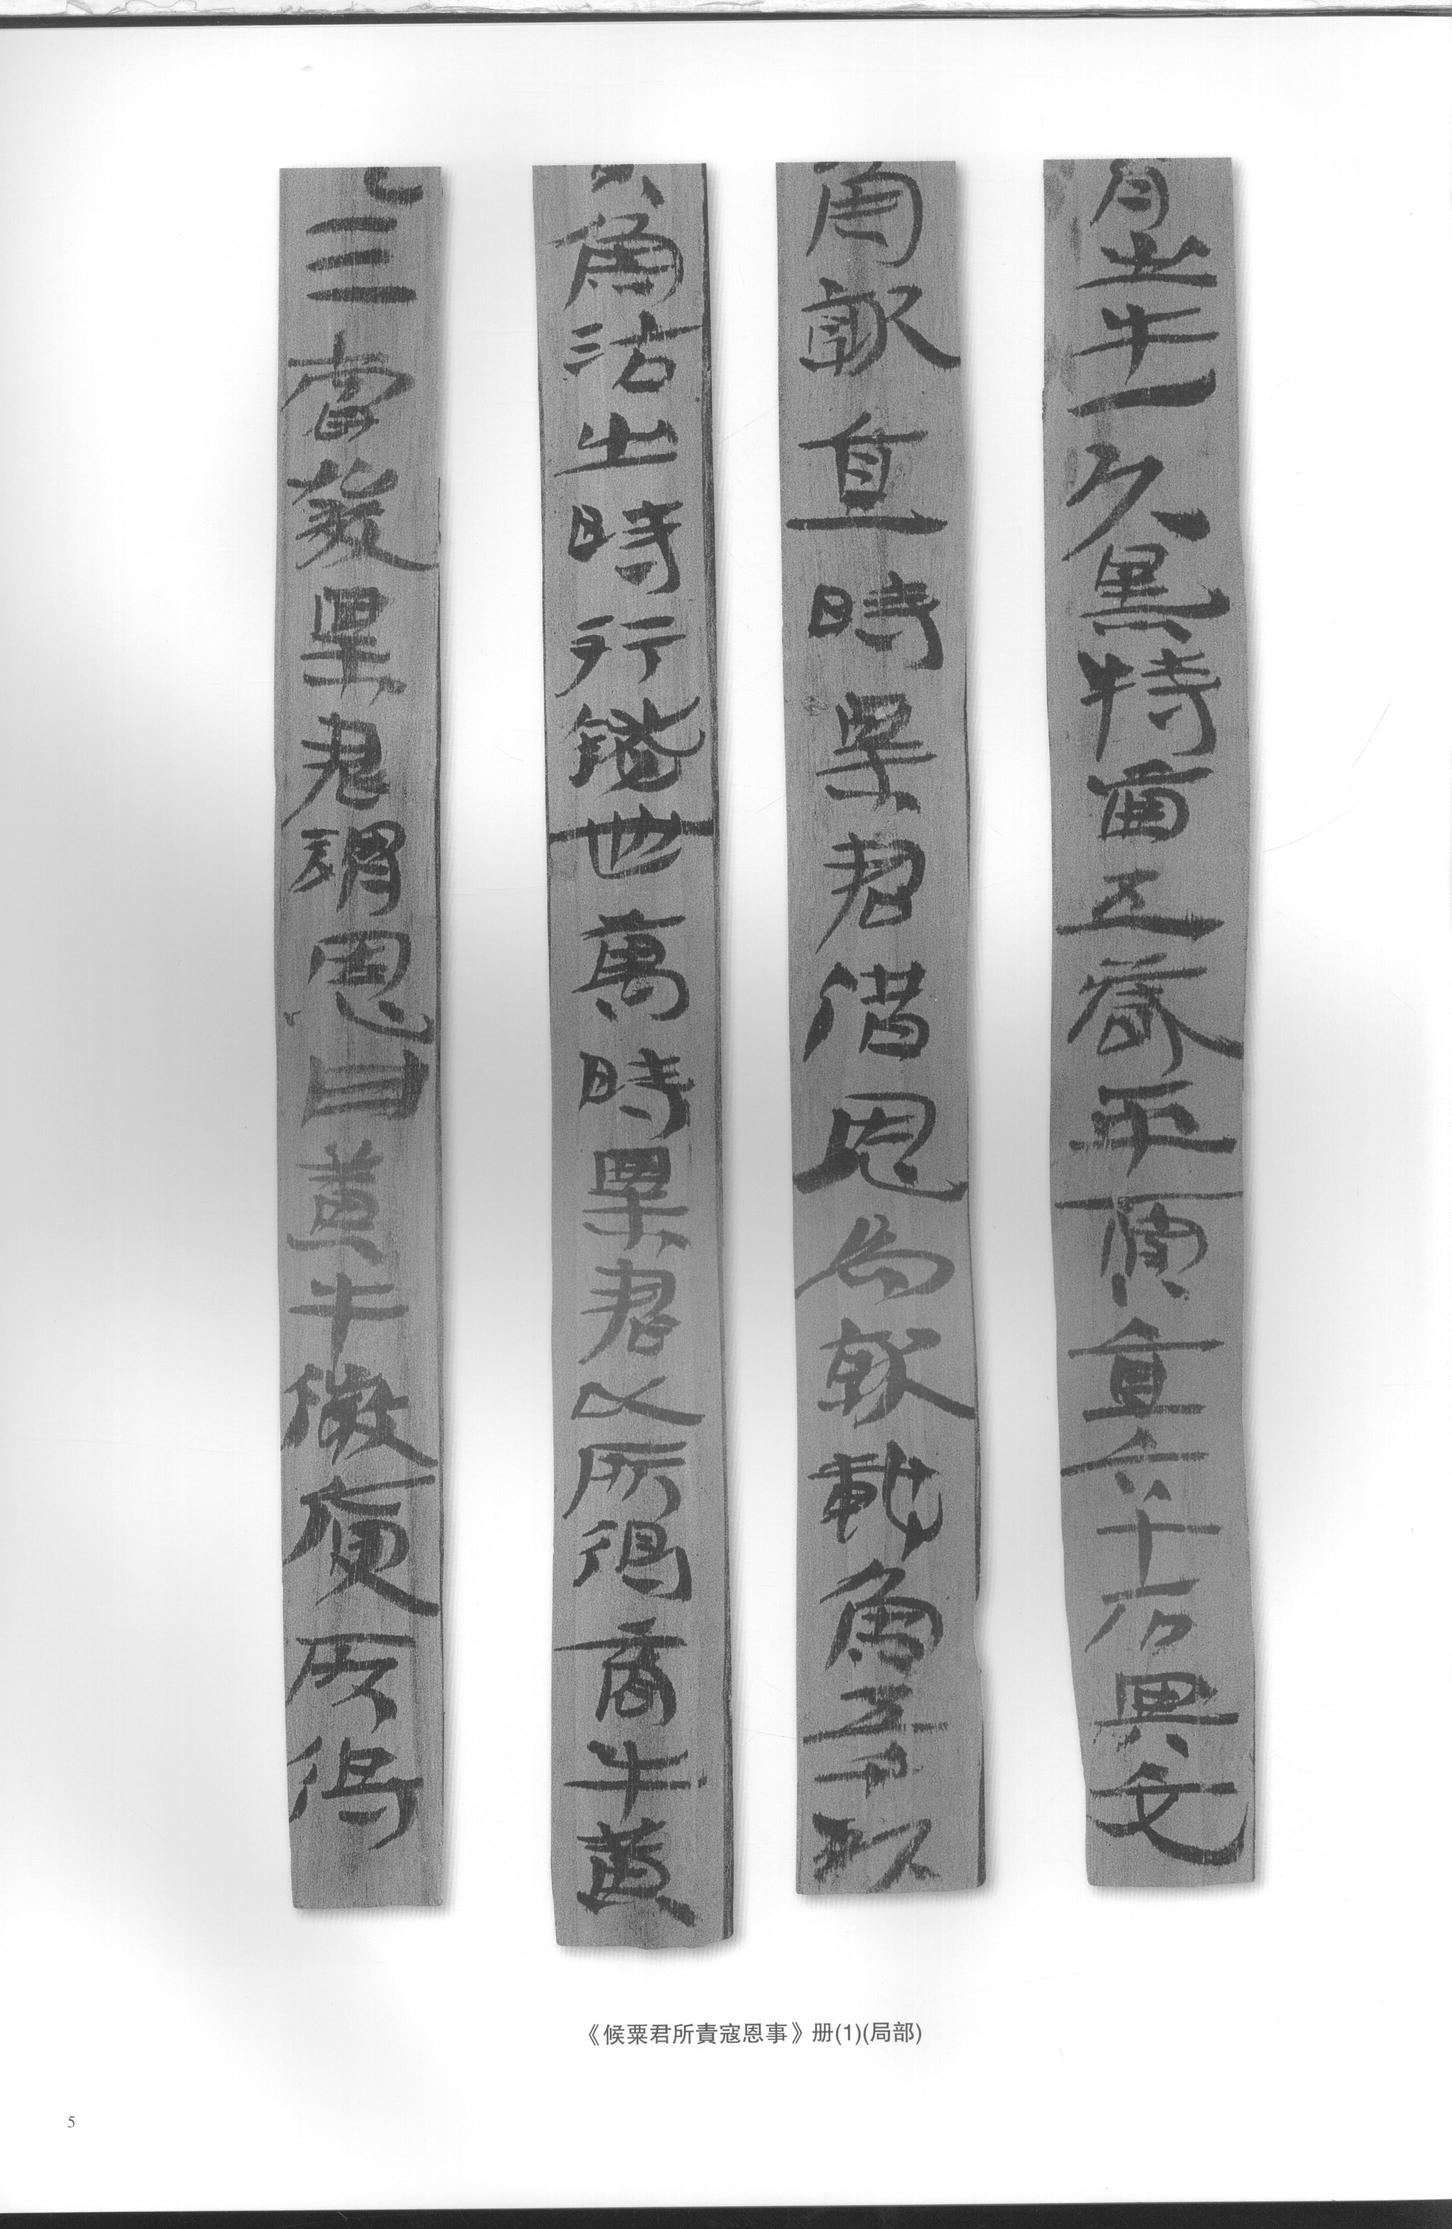 育出牛一頭黑特齒五歲平賈直六十石與交
魚就直時粟君借恩為就載魚五千頭
魚沽出時行錢卌萬時粟君以所得商牛黃
三當發粟君謂恩曰黃牛微庾所得
《候粟君所責寇恩事》册(1)(局部)
5